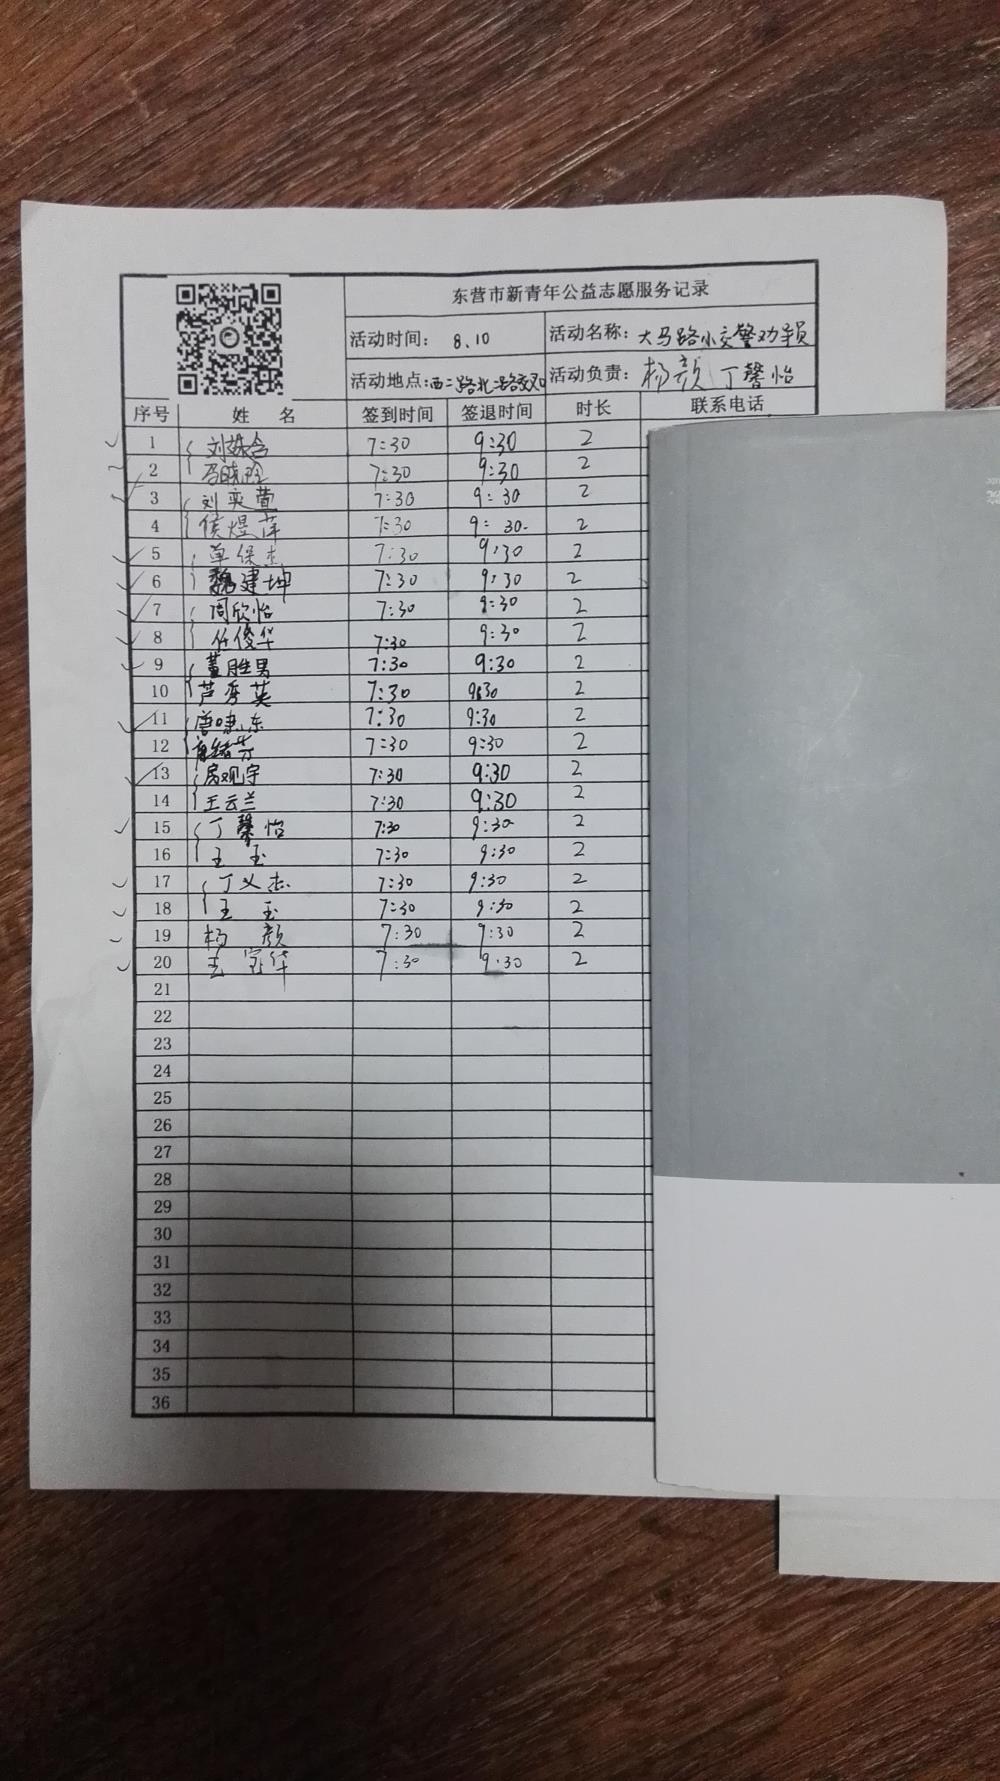 东营市新青年公益志愿服务记录
活动时间： 8.10 活动名称：大马路小交警劝导员
活动地点：西二路北一路交叉口 活动负责：杨颜 丁馨怡
序号 姓 名 签到时间 签退时间 时长 联系电话
1 刘 7:30 9:30 2
2 7:30 9:30 2
3 刘奕萱 7:30 9:30 2
4 侯煜萍 7:30 9:30 2
5 单保杰 7:30 9:30 2
6 魏建坤 7:30 9:30 2
7 周欣怡 7:30 9:30 2
8 任俊华 7:30 9:30 2
9 董胜男 7:30 9:30 2
10 芦秀英 7:30 9:30 2
11 东 7:30 9:30 2
12 芳 7:30 9:30 2
13 房观宇 7:30 9:30 2
14 王云兰 7:30 9:30 2
15 丁馨怡 7:30 9:30 2
16 王 玉 7:30 9:30 2
17 丁义杰 7:30 9:30 2
18 王 玉 7:30 9:30 2
19 杨 颜 7:30 9:30 2
20 宝华 7:30 9:30 2
21
22
23
24
25
26
27
28
29
30
31
32
33
34
35
36